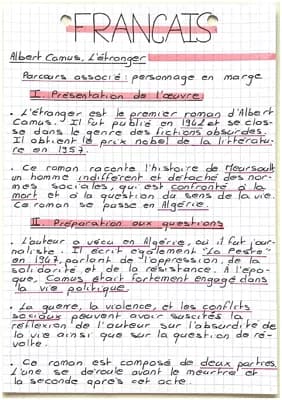 FRANCAIS
Albert Camus, L'étranger
Parcours associé : personnage en marge
I. Présentation de l'œuvre
. L'étranger est le premier roman d'Albert
Camus. Il fut publié en 1942 et se clas-
se dans le genre des fictions absurdes.
Il obtient le prix nobel de la littératu-
re en 1957.
. Ce roman raconte l'histoire de Meursault
un homme indifférent et détaché des nor-
mes sociales, qui est confronté à la
mort et à la question du sens de la vie.
Ce roman se passe en Algérie.
II. Préparation aux questions
. L'auteur a vécu en Algérie, où il fut jour-
naliste. Il écrit également "La Peste"
en 1947, parlant de l'oppression, de la
solidarité et de la résistance. A l'épo-
que, Camus était fortement engagé dans
la vie politique.
. La guerre, la violence, et les conflits
sociaux peuvent avoir suscités la
réflexion de l'auteur sur l'absurdité de
la vie ainsi que sur la question de ré-
volte.
. Ce roman est composé de deux parties.
L'une se déroule avant le meurtre et
la seconde après cet acte.